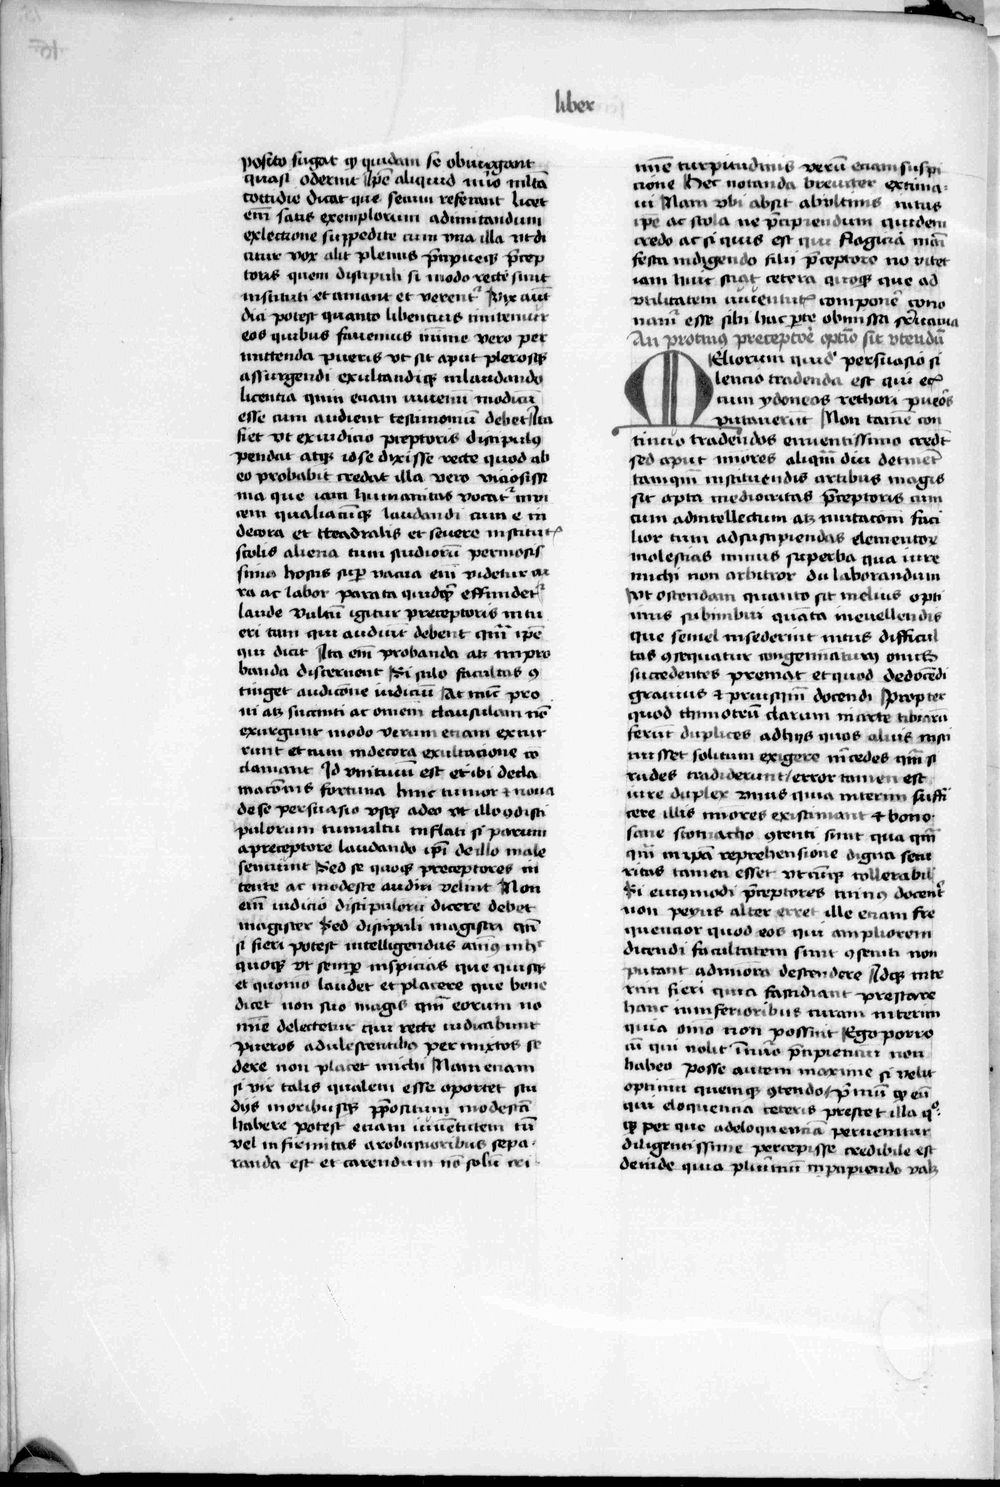 liber
posito fugat qͥ quidam se obiurgant
quasi oderint Ip̄e aliquid im̄o m̄lta
cottidie dicat que secum referant licet
em̄ satis exemplorum adimitandum
exlectione suppedite cum viua illa vt di
citur vox alit plenius p̄cipueqꝫ p̄cep
toris quem discipuli si modo recte sunt
instituti et amant et verent᷑ Vix aut̄
dici potest quanto libentius imitemur
eos quibus fauemus mīme vero per
mittenda pueris vt fit aput plerosqꝫ
assurgendi exultandiqꝫ inlaudando
licencia quin eciam iuuenum modicū
esse cum audient testimoniū debet Ita
fiet vt exiudicio p̄ceptoris discipulꝰ
pendat atqꝫ id se dixisse recte quod ab
eo probabit᷑ credat illa vero viciosissi
ma que iam humanitas vocat᷑ inui
cem qualiacūqꝫ laudandi cum e in
decora et theadralis et seuere institut᷑
scolis aliena tum studiorū perniosis
sima hostis sup̄ vacua em̄ videtur cu
ra ac labor parata quidqͥ effundet᷑
laude Vultū igitur preceptoris intu
eri tam qui audiūt debent qm̄ ip̄e
qui dicit Ita em̄ probanda atꝫ inpro
banda discernent Si stilo facultas ꝯ
tinget audicōne iudiciū At nūc pro
ni atꝫ succinti ac om̄em clausulam nō
exurgunt modo verum eciam excur
runt et cum indecora exultacione co
clamant Id vnituum est et ibi decla
macōnis fortuna hinc tumor ⁊ noua
de se persuasio vsqꝫ adeo vt illo ꝯdisci
pulorum tumultu inflati si parum
apreceptore laudando ip̄i de illo male
senciunt Sed se quoqꝫ preceptores in
tente ac modeste audiri velint Non
em̄ iudicio discipulorū dicere debet
magister Sed discipuli magistri qm̄
si fieri potest intelligendus aīus in hͦ
quoqꝫ vt semp̄ inspicias que quisqꝫ
et quōmō laudet et placere que bene
dicet non suo magis qm̄ eorum no
mīe delectetur qui recte iudicabunt
Pueros adulescentibꝰ permixtos se
dere non placet michi Nam eciam
si vir talis qualem esse oportet stu
dijs moribusqꝫ p̄positum modestā
habere potest eciam iuuentutem tū
vel infirmitas arobustioribus sepa-
randa est et carendum nō solū cri
mīe turpitudinis verū eciam suspi
cione Hec notanda breuiter extima-
ui Nam vbi absit abultimis vitiis
ip̄e ac scola ne p̄cipiendum quidem
credo ac si quis est qui flagicia mani
festa indigendo filii p̄ceptore nō vitet
iam hinc sciat cetera quoqꝫ que ad
vtilitatem iuuentut᷑ componē cono
nam᷑ esse sibi hac p̄te obmissa sup̄uacua
An protinus preceptore optīo sit vtendū
Meliorum quid' persuasio si
lencio tradenda est qui ec᷑
cum ydoneos rethori pueōs
putauerūt Non tamē con
tinuo tradendos emientissimo credt̄
sed aput miores aliqm̄ diu detinet̄
tamqm̄ instituendis artibus magis
sit apta mediocritas p̄ceptoris cum
cum adintellectum atꝫ imitacōm faci
lior tum adsuscipiendas elementoꝝ
molestias minus superba qua iure
michi non arbitror diu laborandum
Vt ostendam quanto sit melius opti
mis subimbui quāta ineuellendis
que semel insederint vitiis difficul
tas ꝯsequatur congeminatuꝫ onusꝫ
succedentes premat et quod dedocēdi
grauius ⁊ priusqm̄ docendi Propter
quod thimoteū clarum in arte tibiarū
ferūt duplices adhijs quos alius insti
tuisset solitum exigere m̄cedes qm̄ si
rudes tradiderunt error tamen est
in re duplex vnus quia interim suffi
cere illis miores existimant ⁊ bono
sane stomacho ꝯtenti sunt qua qm̄
qm̄ in ip̄a reprehensione digna secu
ritas tamen esset vtcūqꝫ tollerabil᷑
Si eiusmodi p̄ceptores minꝰ docent᷑
non peyus alter erret ille eciam fre
quencior quod eos qui ampliorem
dicendi facultatem sunt ꝯsecuti non
putant adminora descendere Idqꝫ inte
rim fieri quia fastidiant prestare
hanc inīnferioribus curam interim
quia om̄o non possint Ego porro
cū qui nolit īnuō p̄cipiencium non
habeo Posse autem maxime si velit
optimū quemqꝫ ꝯtendo p̄mū qꝫ eū
qui eloquencia ceteris prestet illa qͦ-
qꝫ per que adeloquenciā peruenitur
diligentissime percepisse credibile est
deinde quia plurimū in p̄cipiendo valꝫ